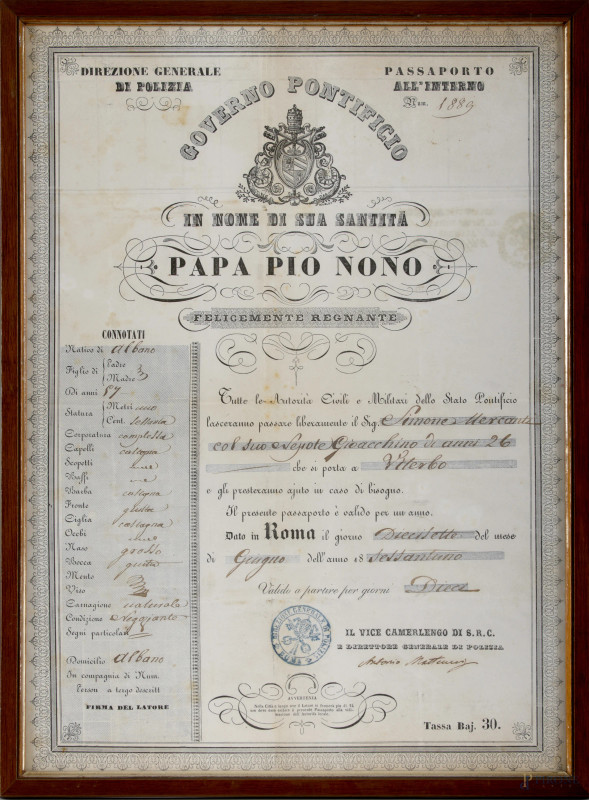 DIREZIONE GENERALE
DI POLIZIA
PASSAPORTO
ALL'INTERNO
Num. 1889
GOVERNO PONTIFICIO
IN NOME DI SUA SANTITÀ
PAPA PIO NONO
FELICEMENTE REGNANTE
CONNOTATI
Nativo di Albano
Figlio di Padre
Madre
Di anni 57
Statura Metri uno
Cent.
Corporatura complessa
Capelli castagna
Scopetti
Baffi
Barba castagna
Fronte giusta
Ciglia castagna
Occhi
Naso grosso
Bocca giusta
Mento
Viso
Carnagione naturale
Condizione
Segni particolari
Domicilio Albano
In compagnia di Num.
Person a tergo descritt
FIRMA DEL LATORE
Tutte le Autorità Civili e Militari dello Stato Pontificio
lasceranno passare liberamente il Sig. Simone Mercanti
col suo Nepote Gioacchino di anni 26
che si porta a Viterbo
e gli presteranno ajuto in caso di bisogno.
Il presente passaporto è valido per un anno.
Dato in Roma il giorno Dieciotto del mese
di Giugno dell'anno 18 sessantuno
Valido a partire per giorni Dieci
IL VICE CAMERLENGO DI S. R. C.
E DIRETTORE GENERALE DI POLIZIA
Antonio Matteucci
AVVERTENZA
Tassa Baj. 30.